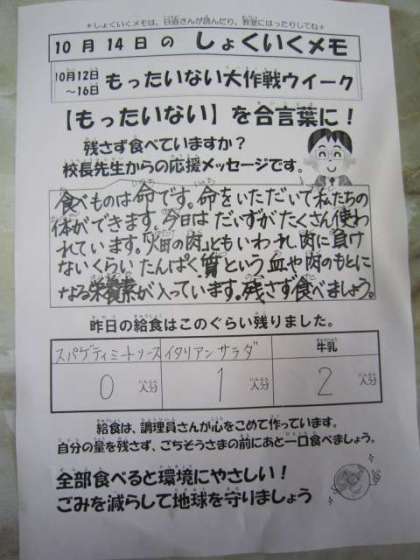 ＊しょくいくメモは、日直さんが読んだり、教室にはったりしてね＊
10月14日の しょくいくメモ
10月12日～16日 もったいない大作戦ウイーク
【もったいない】を合言葉に！
残さず食べていますか？
校長先生からの応援メッセージです。
食べものは命です。命をいただいて私たちの
体ができます。今日はだいずがたくさん使わ
れています。「火田の肉」ともいわれ、肉に負け
ないくらいたんぱく質という血や肉のもとに
なる栄養素が入っています。残さず食べましょう。
昨日の給食はこのぐらい残りました。
スパゲティミートソース イタリアンサラダ 牛乳
0人分 1人分 2人分
給食は、調理員さんが心をこめて作っています。
自分の量を残さず、ごちそうさまの前にあと一口食べましょう。
全部食べると環境にやさしい！
ごみを減らして地球を守りましょう